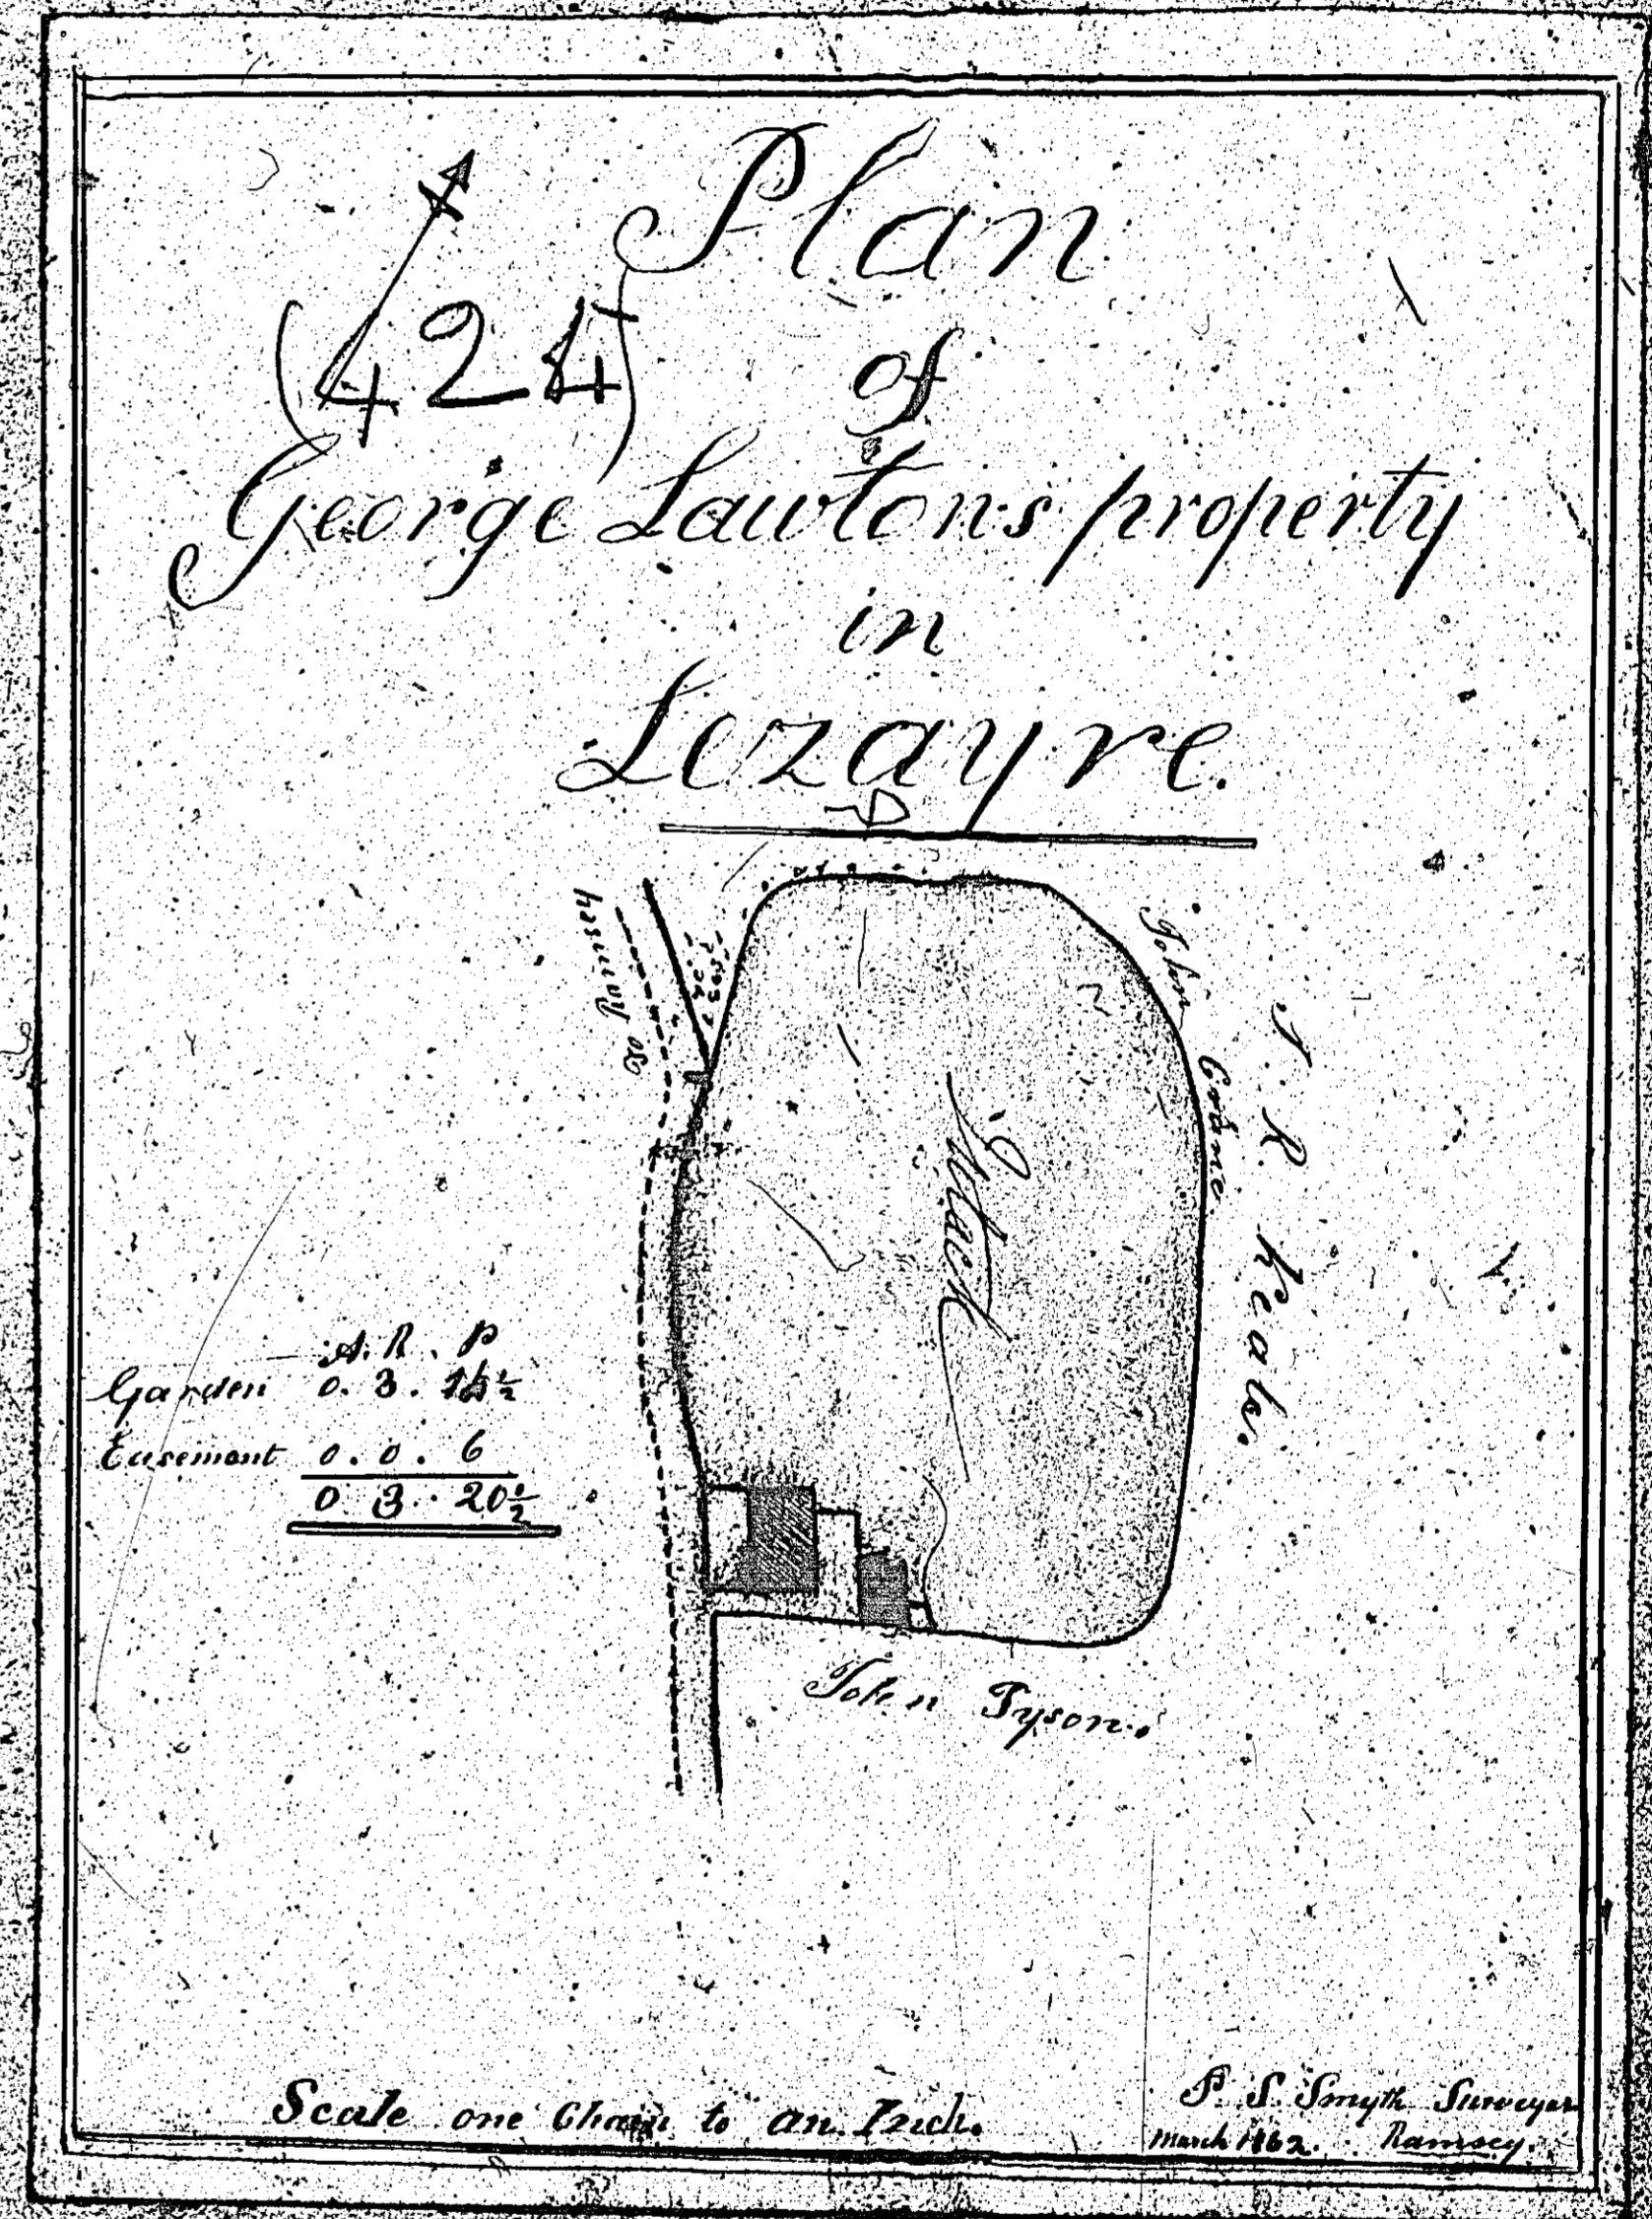 Plan
(424)
of
George Lawtons property
in
Lezayre.
to Ramsey
John
T. R. Keob.
Intack
A. R. P
Garden 0. 3. 14½
Easement 0. 0. 6
0 3. 20½
John Tyson.
Scale one Chain to an Inch.
P. S. Smyth Surveyor
March 1862. Ramsey.